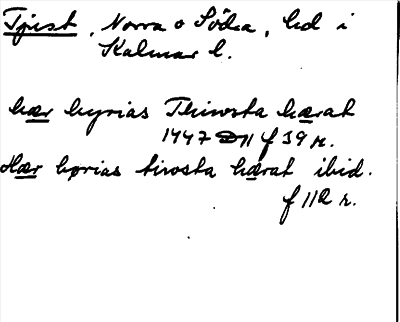 Tjust, Norra o Södra, hd i
Kalmar l.
hær byrias Thiwsta hærat
1447 D11 f 39 r.
Hær børias tiwsta hærat ibid.
f 112 r.